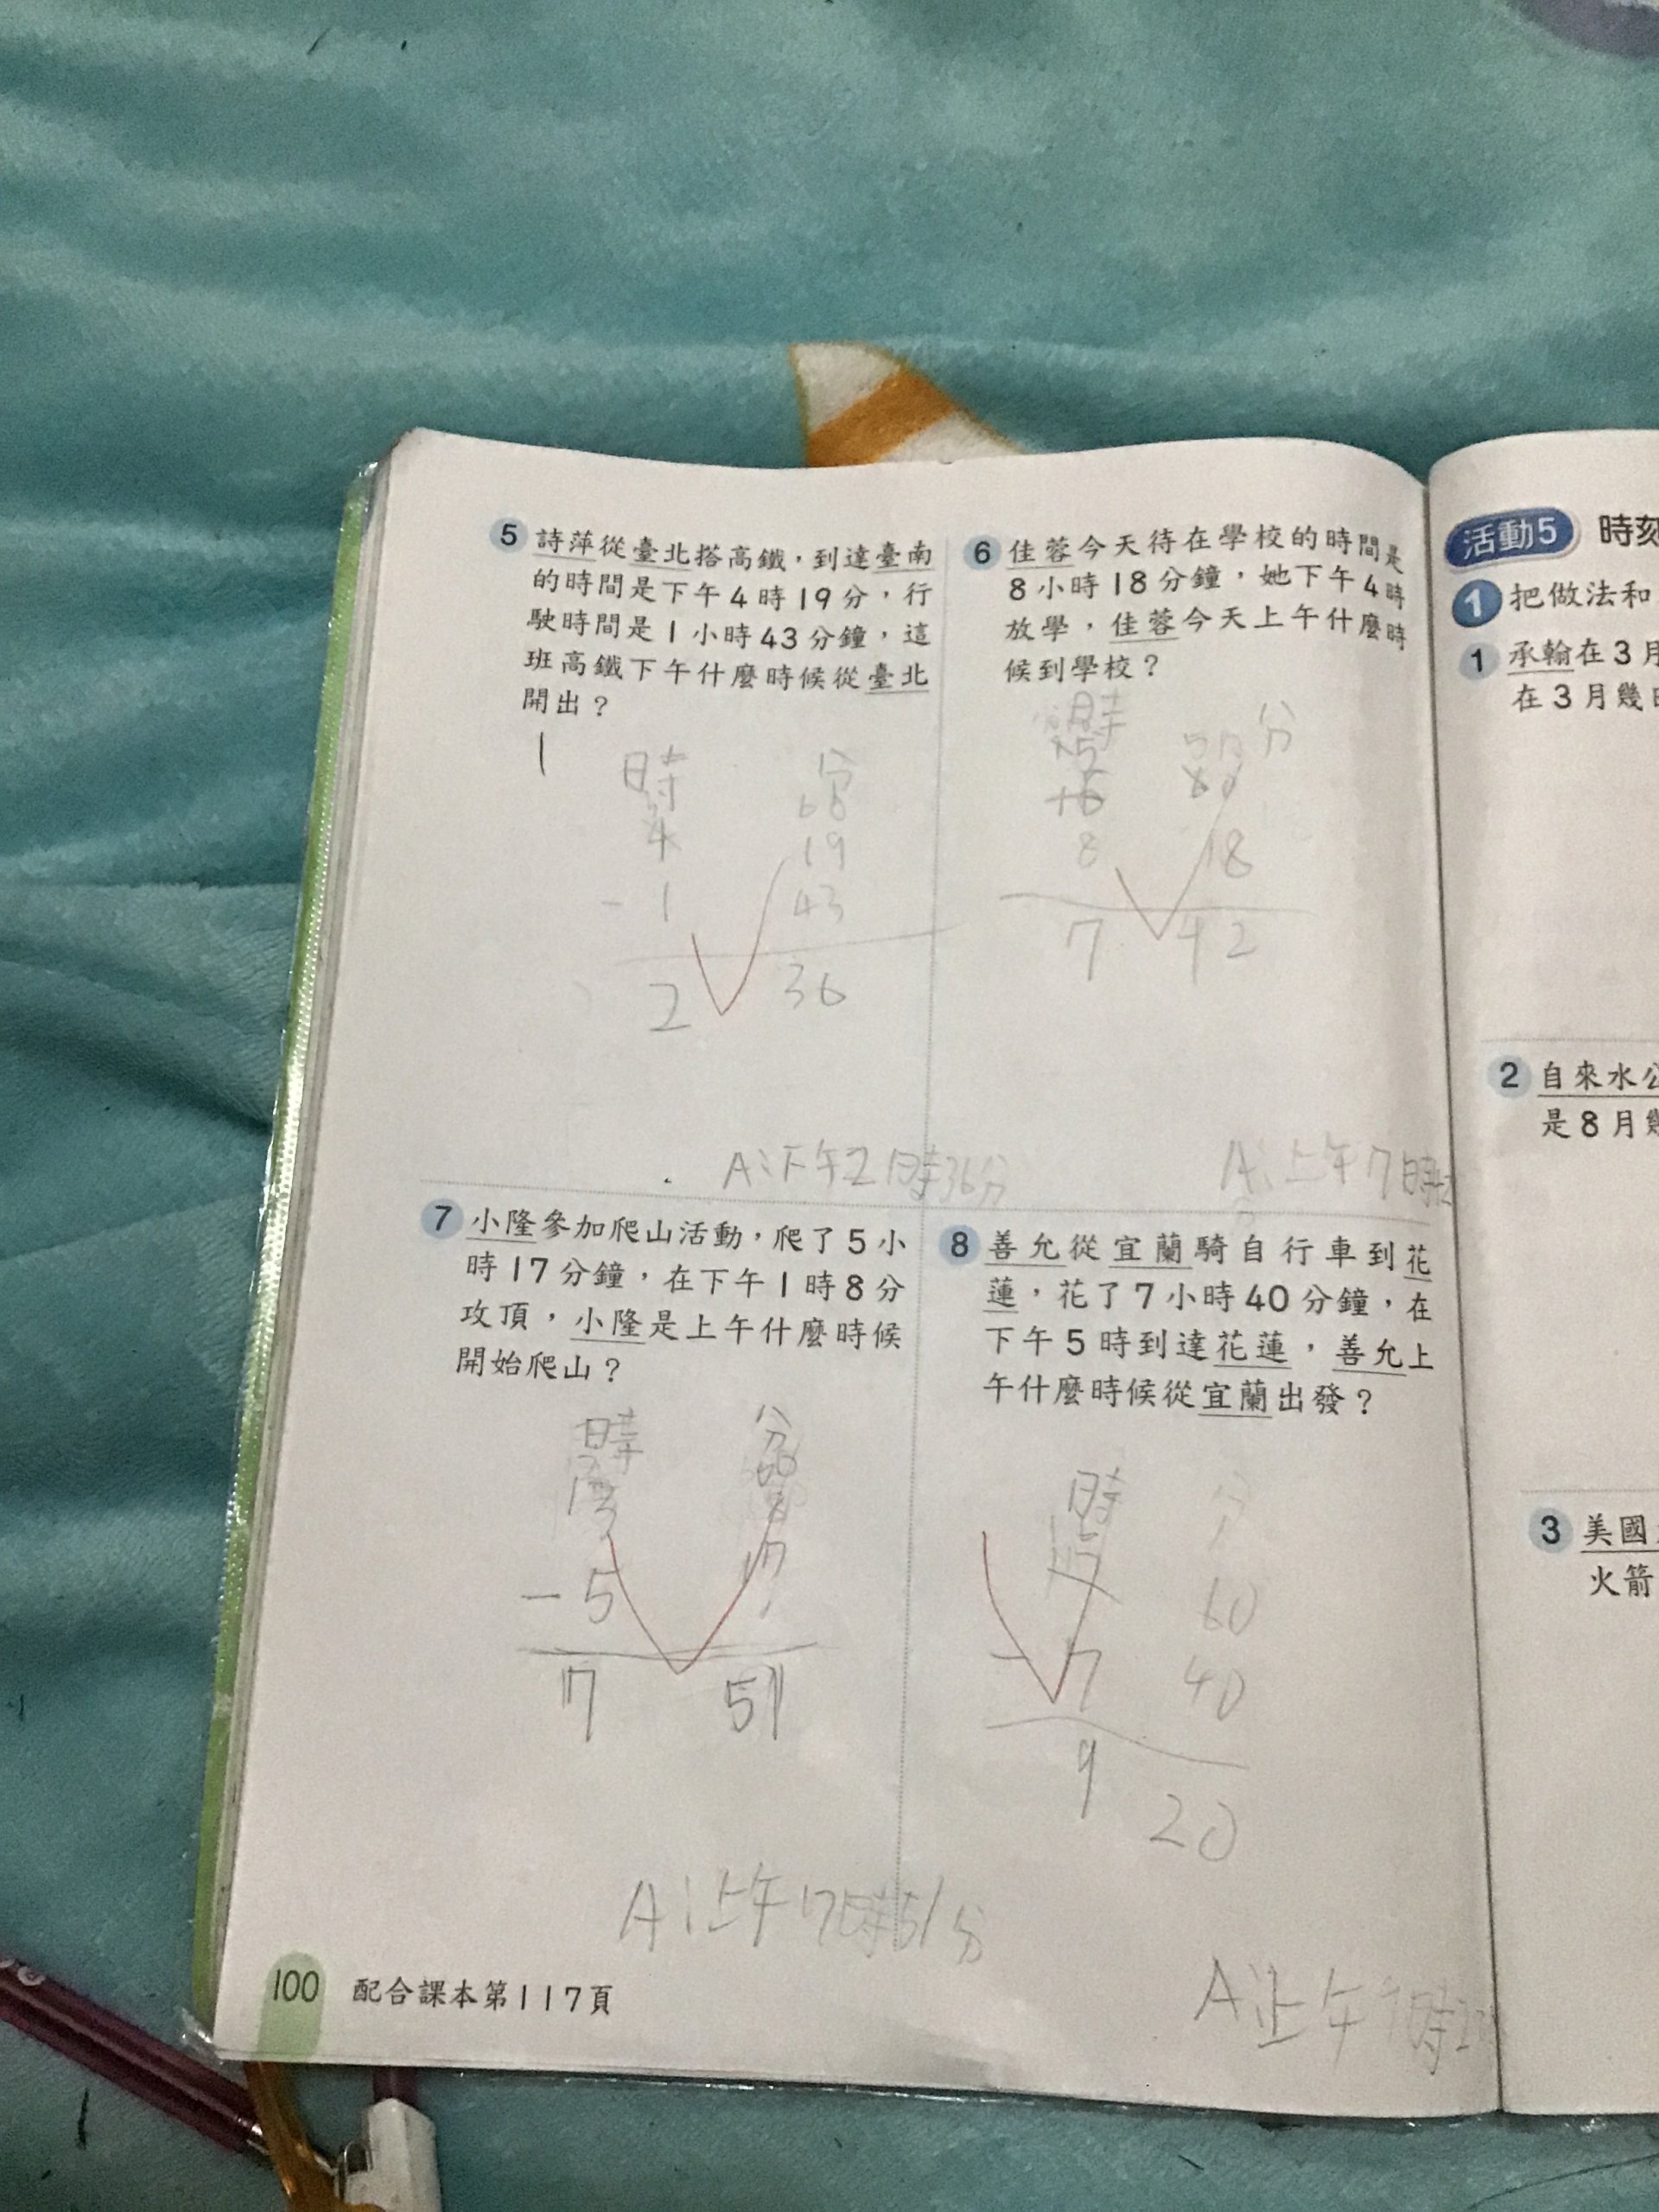 5 詩萍從臺北搭高鐵，到達臺南
的時間是下午4時19分，行
駛時間是1小時43分鐘，這
班高鐵下午什麼時候從臺北
開出？
時 分
4 19
- 1 43
2 36
A:下午2時36分
6 佳蓉今天待在學校的時間是
8小時18分鐘，她下午4時
放學，佳蓉今天上午什麼時
候到學校？
時 分
8 18
7 42
A:上午7時
7 小隆參加爬山活動，爬了5小
時17分鐘，在下午1時8分
攻頂，小隆是上午什麼時候
開始爬山？
時 分
- 5 17
7 51
A:上午7時51分
8 善允從宜蘭騎自行車到花
蓮，花了7小時40分鐘，在
下午5時到達花蓮，善允上
午什麼時候從宜蘭出發？
時
60
- 7 40
9 20
A:上午9時2
100 配合課本第117頁
活動5 時刻
1 把做法和
1 承翰在3月
在3月幾
2 自來水公
是8月
3 美國
火箭